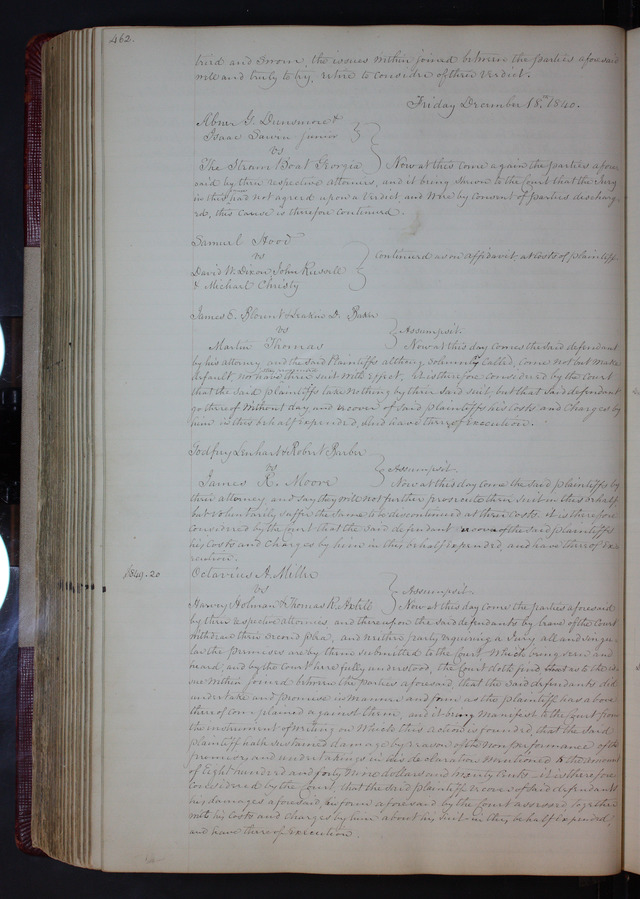 462.
tried and sworn, the issues within joined between the parties aforesaid
well and truly to try, retire to consider of their verdict.
Friday December 18th 1840.
Abner G. Dunsmore &
Isaac Sawin Junior
vs
The Steam Boat Georgia } Now at this come again the parties afore
said by their respective attornies, and it being shown to the Court that the Jury
in this cause had not agreed upon a verdict, and were by consent of parties discharg
ed, this cause is therefore continued.
Samuel Hood
vs
David W. Dixon John Russell
& Michael Christy } Continued as on Affidavit at Costs of plaintiff
James E. Blount & D. Baker
vs } Assumpsit.
Martin Thomas Now at this day comes the said defendant
by his attorney and the said Plaintiffs altho'g solemnly called, come not but make
default, nor have they prosecuted their suit with effect, it is therefore considered by the Court
that the said plaintiffs take nothing by their said suit but that said defendant
go thereof without day and recover of said plaintiffs his costs and charges by
him in this behalf expended, and have thereof execution.
Godfrey Lenhart & Robert Barber
vs } Assumpsit.
James R. Moore Now at this day come the said plaintiffs by
their attorney and say they will not further prosecute their suit in this behalf
but voluntarily suffer the same to be discontinued at their costs. it is therefore
considered by the Court that the said defendant recover of the said plaintiffs
his costs and charges by him in this behalf expended, and have thereof exe
cution.
$849.20
Octavius A. Miller
vs } Assumpsit.
Harvey Holman & Thomas R. Axtell Now at this day come the parties aforesaid
by their respective attornies and thereupon the said defendants by leave of the Court
withdraw their second plea, and neither party requiring a Jury all and singu
lar the premises are by them submitted to the Court which being seen and
heard, and by the Court here fully understood, the Court doth find, that as to the is
sue within joined between the parties aforesaid, that the said defendants did
undertake and promise in manner and form as the plaintiff has above
thereof complained against them, and it being manifest to the Court from
the instrument of writing on which this action is founded, that the said
plaintiff hath sustained damage by reason of the non performance of the
promises and undertakings in his declaration mentioned to the amount
of Eight hundred and forty nine dollars and twenty cents. it is therefore
Considered by the Court, that the said plaintiff recover of said defendants
his damages aforesaid in form aforesaid by the Court assessed, together
with his costs and charges by him about his suit in this behalf expended,
and have thereof execution.